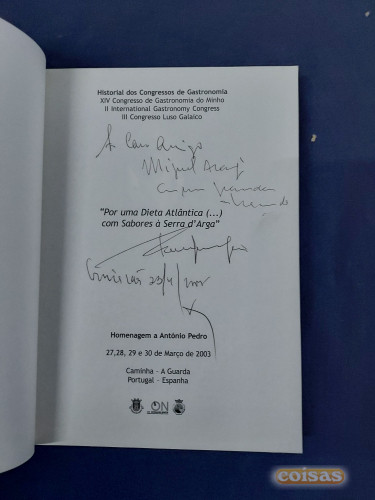 Historial dos Congressos de Gastronomia
XIV Congresso de Gastronomia do Minho
II International Gastronomy Congress
III Congresso Luso Galaico
Miguel
"Por uma Dieta Atlântica (...)
com Sabores à Serra d'Arga"
Homenagem a António Pedro
27,28, 29 e 30 de Março de 2003
Caminha - A Guarda
Portugal - Espanha
ON
coisas